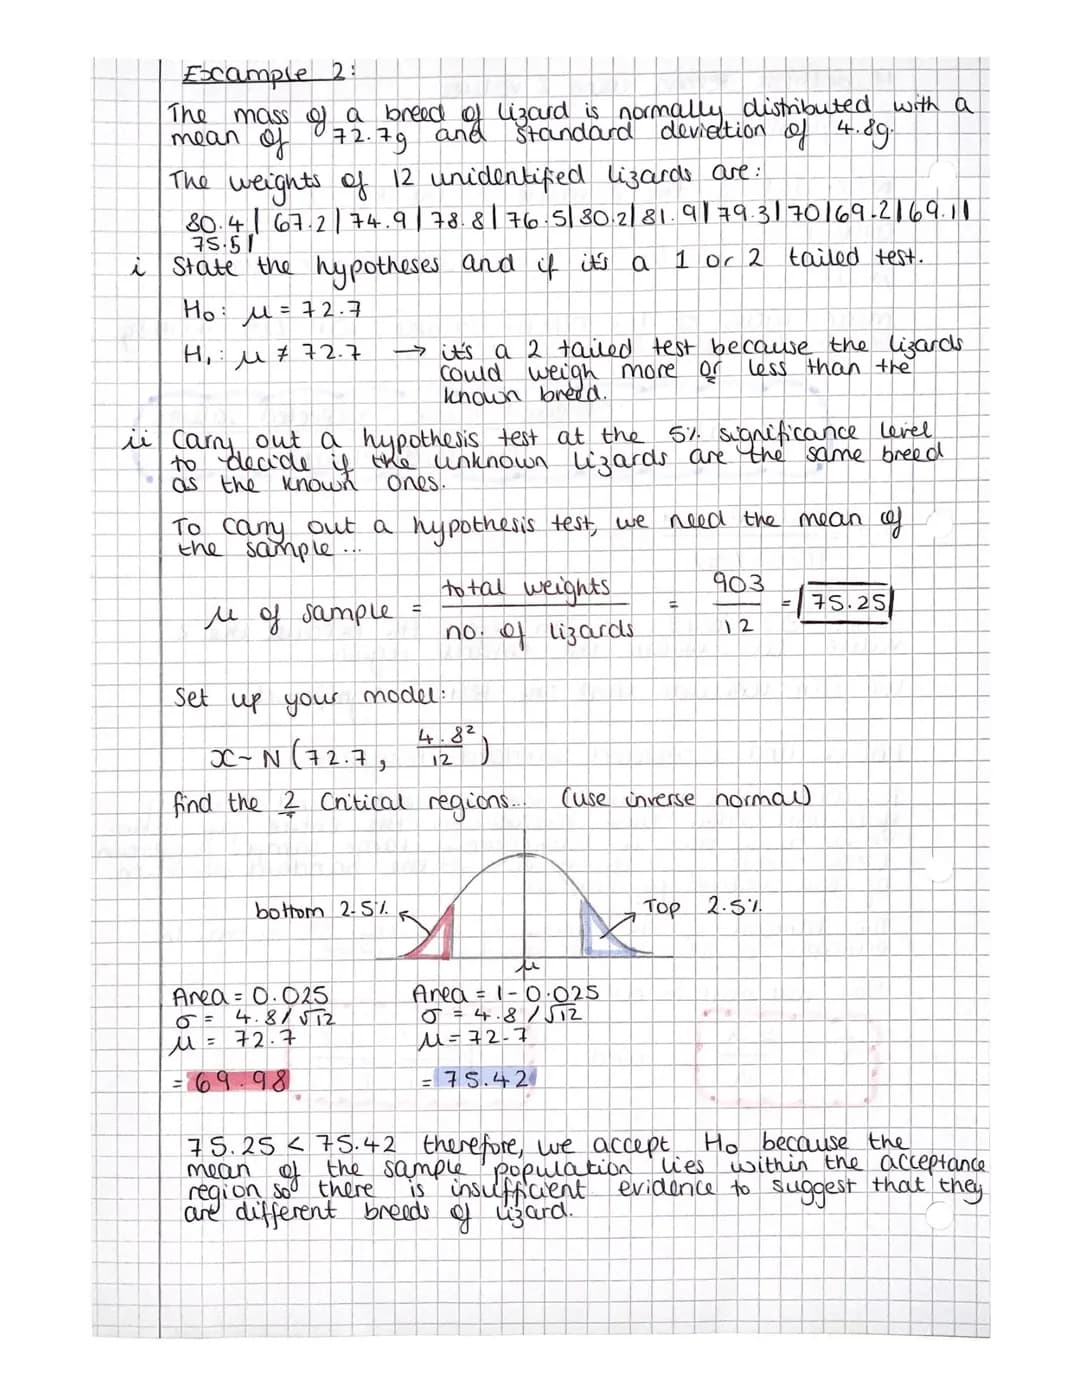 Example 2:
The mass of a breed of lizard is normally distributed with a
mean of 72.7g and standard deviation of 4.8g.
The weights of 12 unidentified lizards are:
80.4 | 67.2 | 74.9 | 78.8 | 76.5 | 80.2 | 81.9 | 79.3 | 70 | 69.2 | 69.1 |
75.5 |
i State the hypotheses and if it's a 1 or 2 tailed test.
H₀: μ = 72.7
H₁: μ ≠ 72.7 → it's a 2 tailed test because the lizards
could weigh more or less than the
known breed.
ii Carry out a hypothesis test at the 5% significance level
to decide if the unknown lizards are the same breed
as the known ones.
To carry out a hypothesis test, we need the mean of
the sample ...
μ of sample = total weights / no. of lizards = 903 / 12 = 75.25
Set up your model:
x ~ N (72.7, 4.8² / 12)
find the 2 critical regions... (use inverse normal)
bottom 2.5% Top 2.5%
μ
Area = 0.025 Area = 1-0.025
σ = 4.8/√12 σ = 4.8/√12
μ = 72.7 μ = 72.7
= 69.98 = 75.42
75.25 < 75.42 therefore, we accept H₀ because the
mean of the sample population lies within the acceptance
region so there is insufficient evidence to suggest that they
are different breeds of lizard.